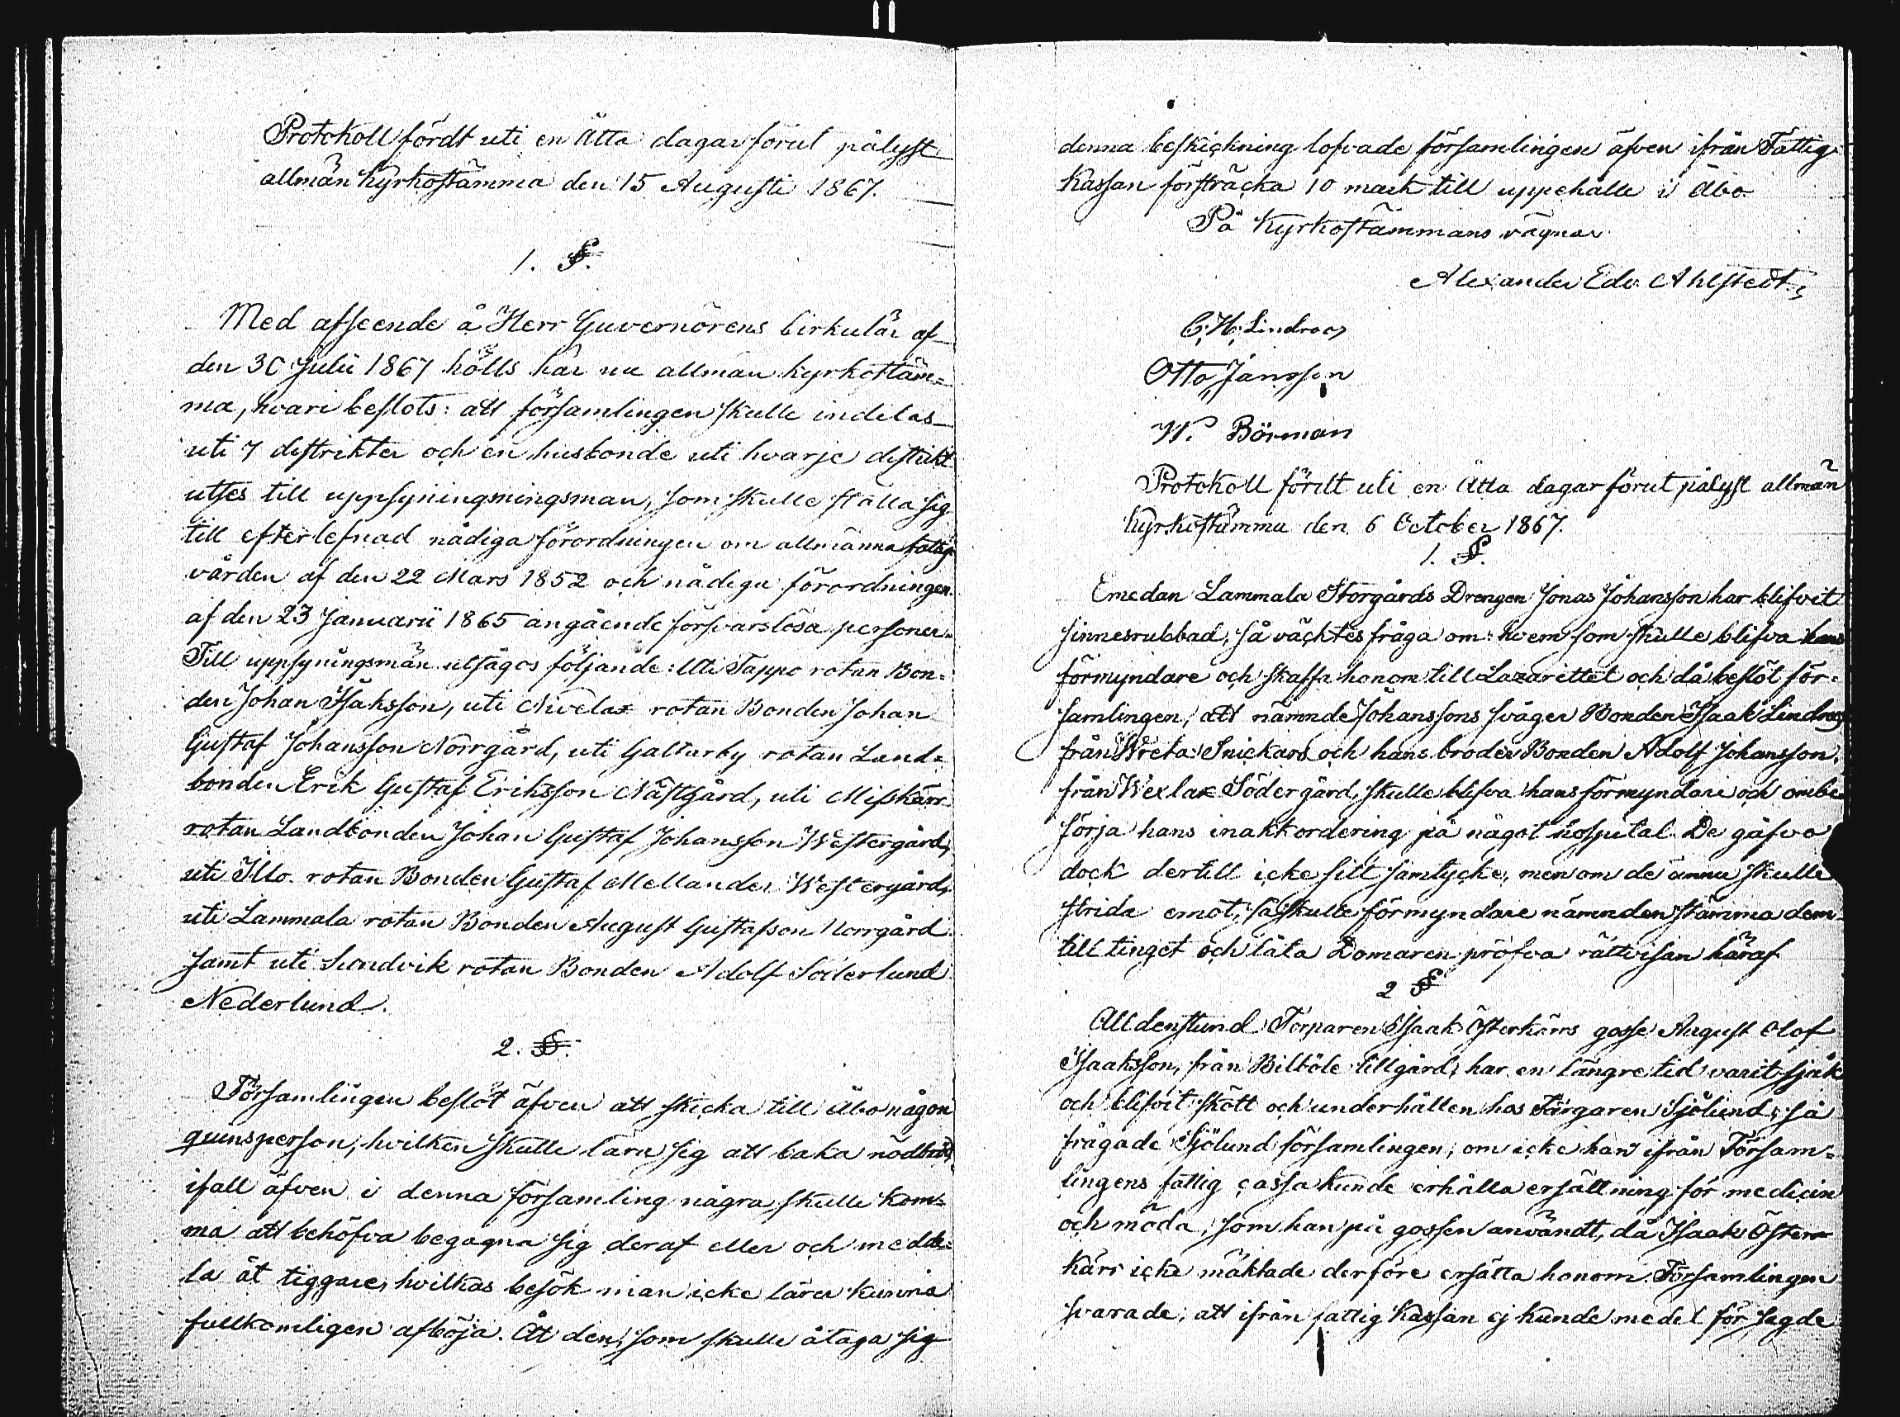 Protokoll fördt uti en åtta dagar förut pålyst
allmän kyrkostämma den 15 Augusti 1867.
1. §.
Med afseende å Herr Guvernörens Cirkulär af
den 30 Julii 1867 hölls här nu allmän kyrkostäm=
ma, hvari beslöts: att församlingen skulle indelas
uti 7 distrikter och en husbonde uti hvarje distrikt
utses till uppsyningmingsman, som skulle ställa sig
till efterlefnad nådiga förordningen om allmänna fattig
vården af den 22 Mars 1852 och nådiga förordningen
af den 23 Januarii 1865 angående försvarslösa personer.
Till uppsyningsmän utsågos följande: Uti Tappo rotan Bon=
den Johan Isaksson, uti Nivelax rotan Bonden Johan
Gustaf Johansson Norrgård, uti Galtarby rotan Land=
bonden Erik Gustaf Eriksson Nästgård, uti Misskärr
rotan Landbonden Johan Gustaf Johansson Westergård,
uti Illo rotan Bonden Gustaf Mellander Westergård,
uti Lammala rotan Bonden August Gustafsson Norrgård
samt uti Sundvik rotan Bonden Adolf Söderlund
Nederlund.
2. §.
Församlingen beslöt äfven att skicka till Åbo någon
qvinsperson, hvilken skulle lära sig att baka nödbröd,
ifall äfven i denna församling några skulle kom=
ma att behöfva begagna sig deraf eller och medde=
la åt tiggare, hvilkas besök man icke lärer kunna
fullkomligen afböja. Åt den, som skulle åtaga sig
denna beskickning lofvade församlingen äfven ifrån Fattig
Kassan försträcka 10 mark till uppehälle i Åbo.
På Kyrkostämmans vägnar
Alexander Edv. Ahlstedt,
C. H. Lindroos
Otto Jansson
W. Börman
Protokoll fördt uti en åtta dagar förut pålyst allmän
kyrkostämma den 6 October 1867.
1. §.
Emedan Lammala Storgårds Drengen Jonas Johansson har blifvit
sinnesrubbad, så väcktes fråga om hvem som skulle blifva hans
förmyndare och skaffa honom till Lazarettet och då beslöt för=
samlingen, att nämnde Johanssons svåger Bonden Isaak Lindroos
från Wreta Snickars och hans broder Bonden Adolf Johansson,
från Wexlax Södergård, skulle blifva hans förmyndare och ombe
sörja hans inakkordering på något hospital. De gåfvo
dock dertill icke sitt samtycke, men om de ännu skulle
strida emot, så skulle förmyndare nämnden stämma dem
till tinget och låta Domaren pröfva rättvisan häraf
2 §
Alldenstund Torparen Isaak Österkärrs gosse August Olof
Isaaksson, från Bilböle Lillgård, har en längre tid varit sjuk
och blifvit skött och underhållen hos Färgaren Sjölund; så
frågade Sjölund församlingen, om icke han ifrån Försam=
lingens fattig cassa kunde erhålla ersättning för medicin
och möda, som han på gossen användt, då Isaak Öster
kärr icke mäktade derföre ersätta honom. Församlingen
svarade, att ifrån fattig Kassan ej kunde medel för sagde